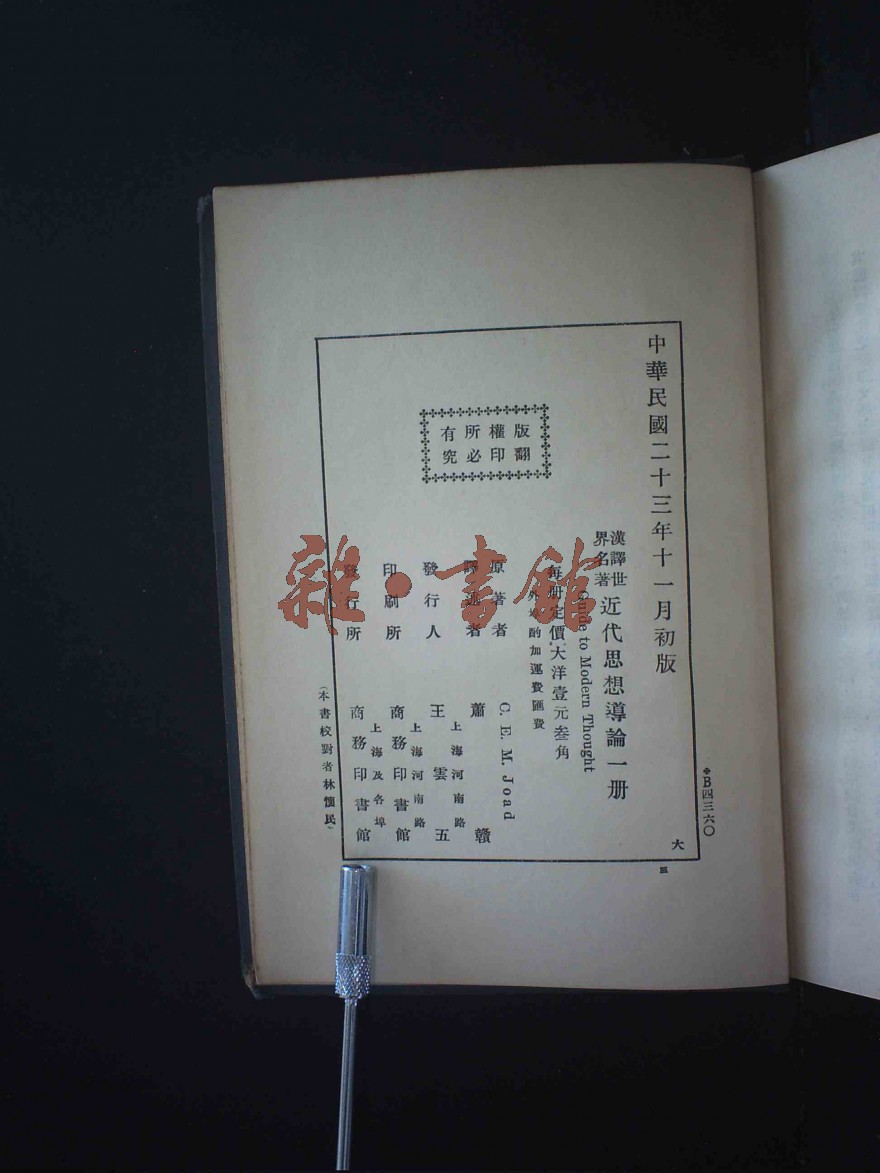 中華民國二十三年十一月初版
✣B四三六〇
大
三
漢譯世界名著
近代思想導論一册
Guide to Modern Thought
每册定價大洋壹元叁角
外埠酌加運費匯費
版權所有
翻印必究
原著者 C. E. M. Joad
譯述者 蕭贛
發行人 王雲五
上海河南路
印刷所 商務印書館
上海河南路
發行所 商務印書館
上海及各埠
(本書校對者林懷民)
雜·書館